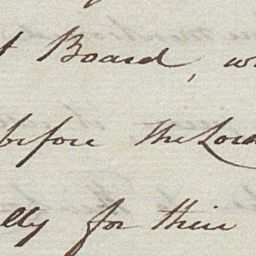 t Board, w
before the Lord
lly for their